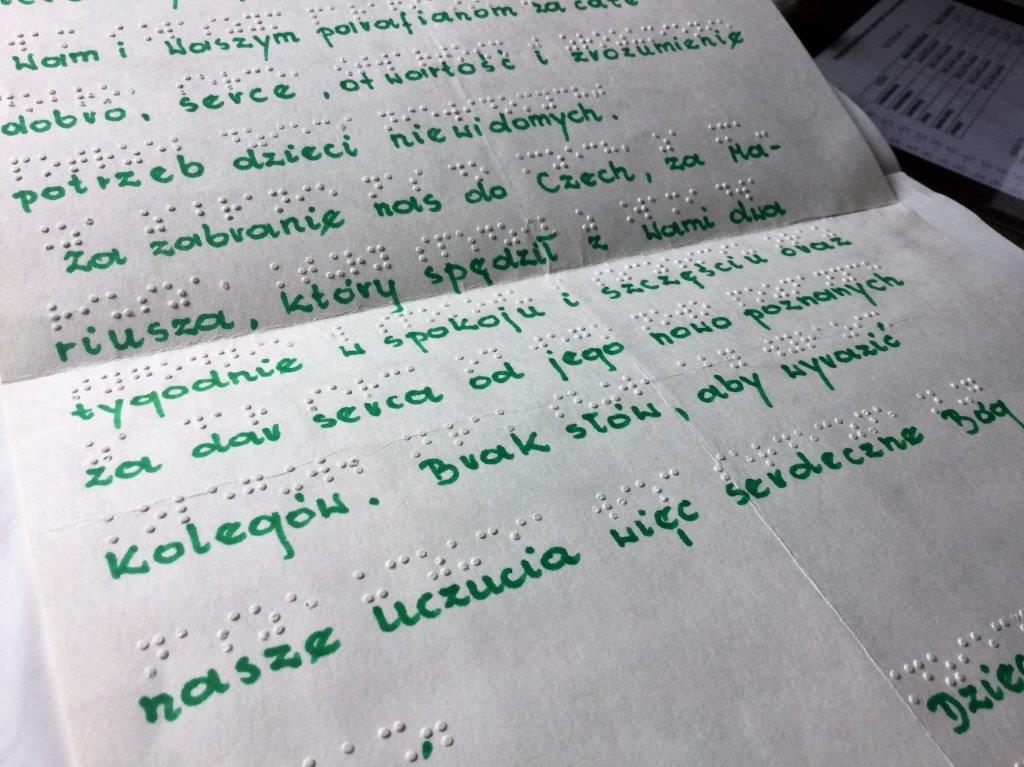 Wam i Waszym parafianom za całe
dobro, serce, otwartość i zrozumienie
potrzeb dzieci niewidomych.
Za zabranie nas do Czech, za Ma-
riusza, który spędził z Wami dwa
tygodnie w spokoju i szczęściu oraz
za dar serca od jego nowo poznanych
kolegów. Brak słów, aby wyrazić
nasze uczucia więc serdeczne Bóg